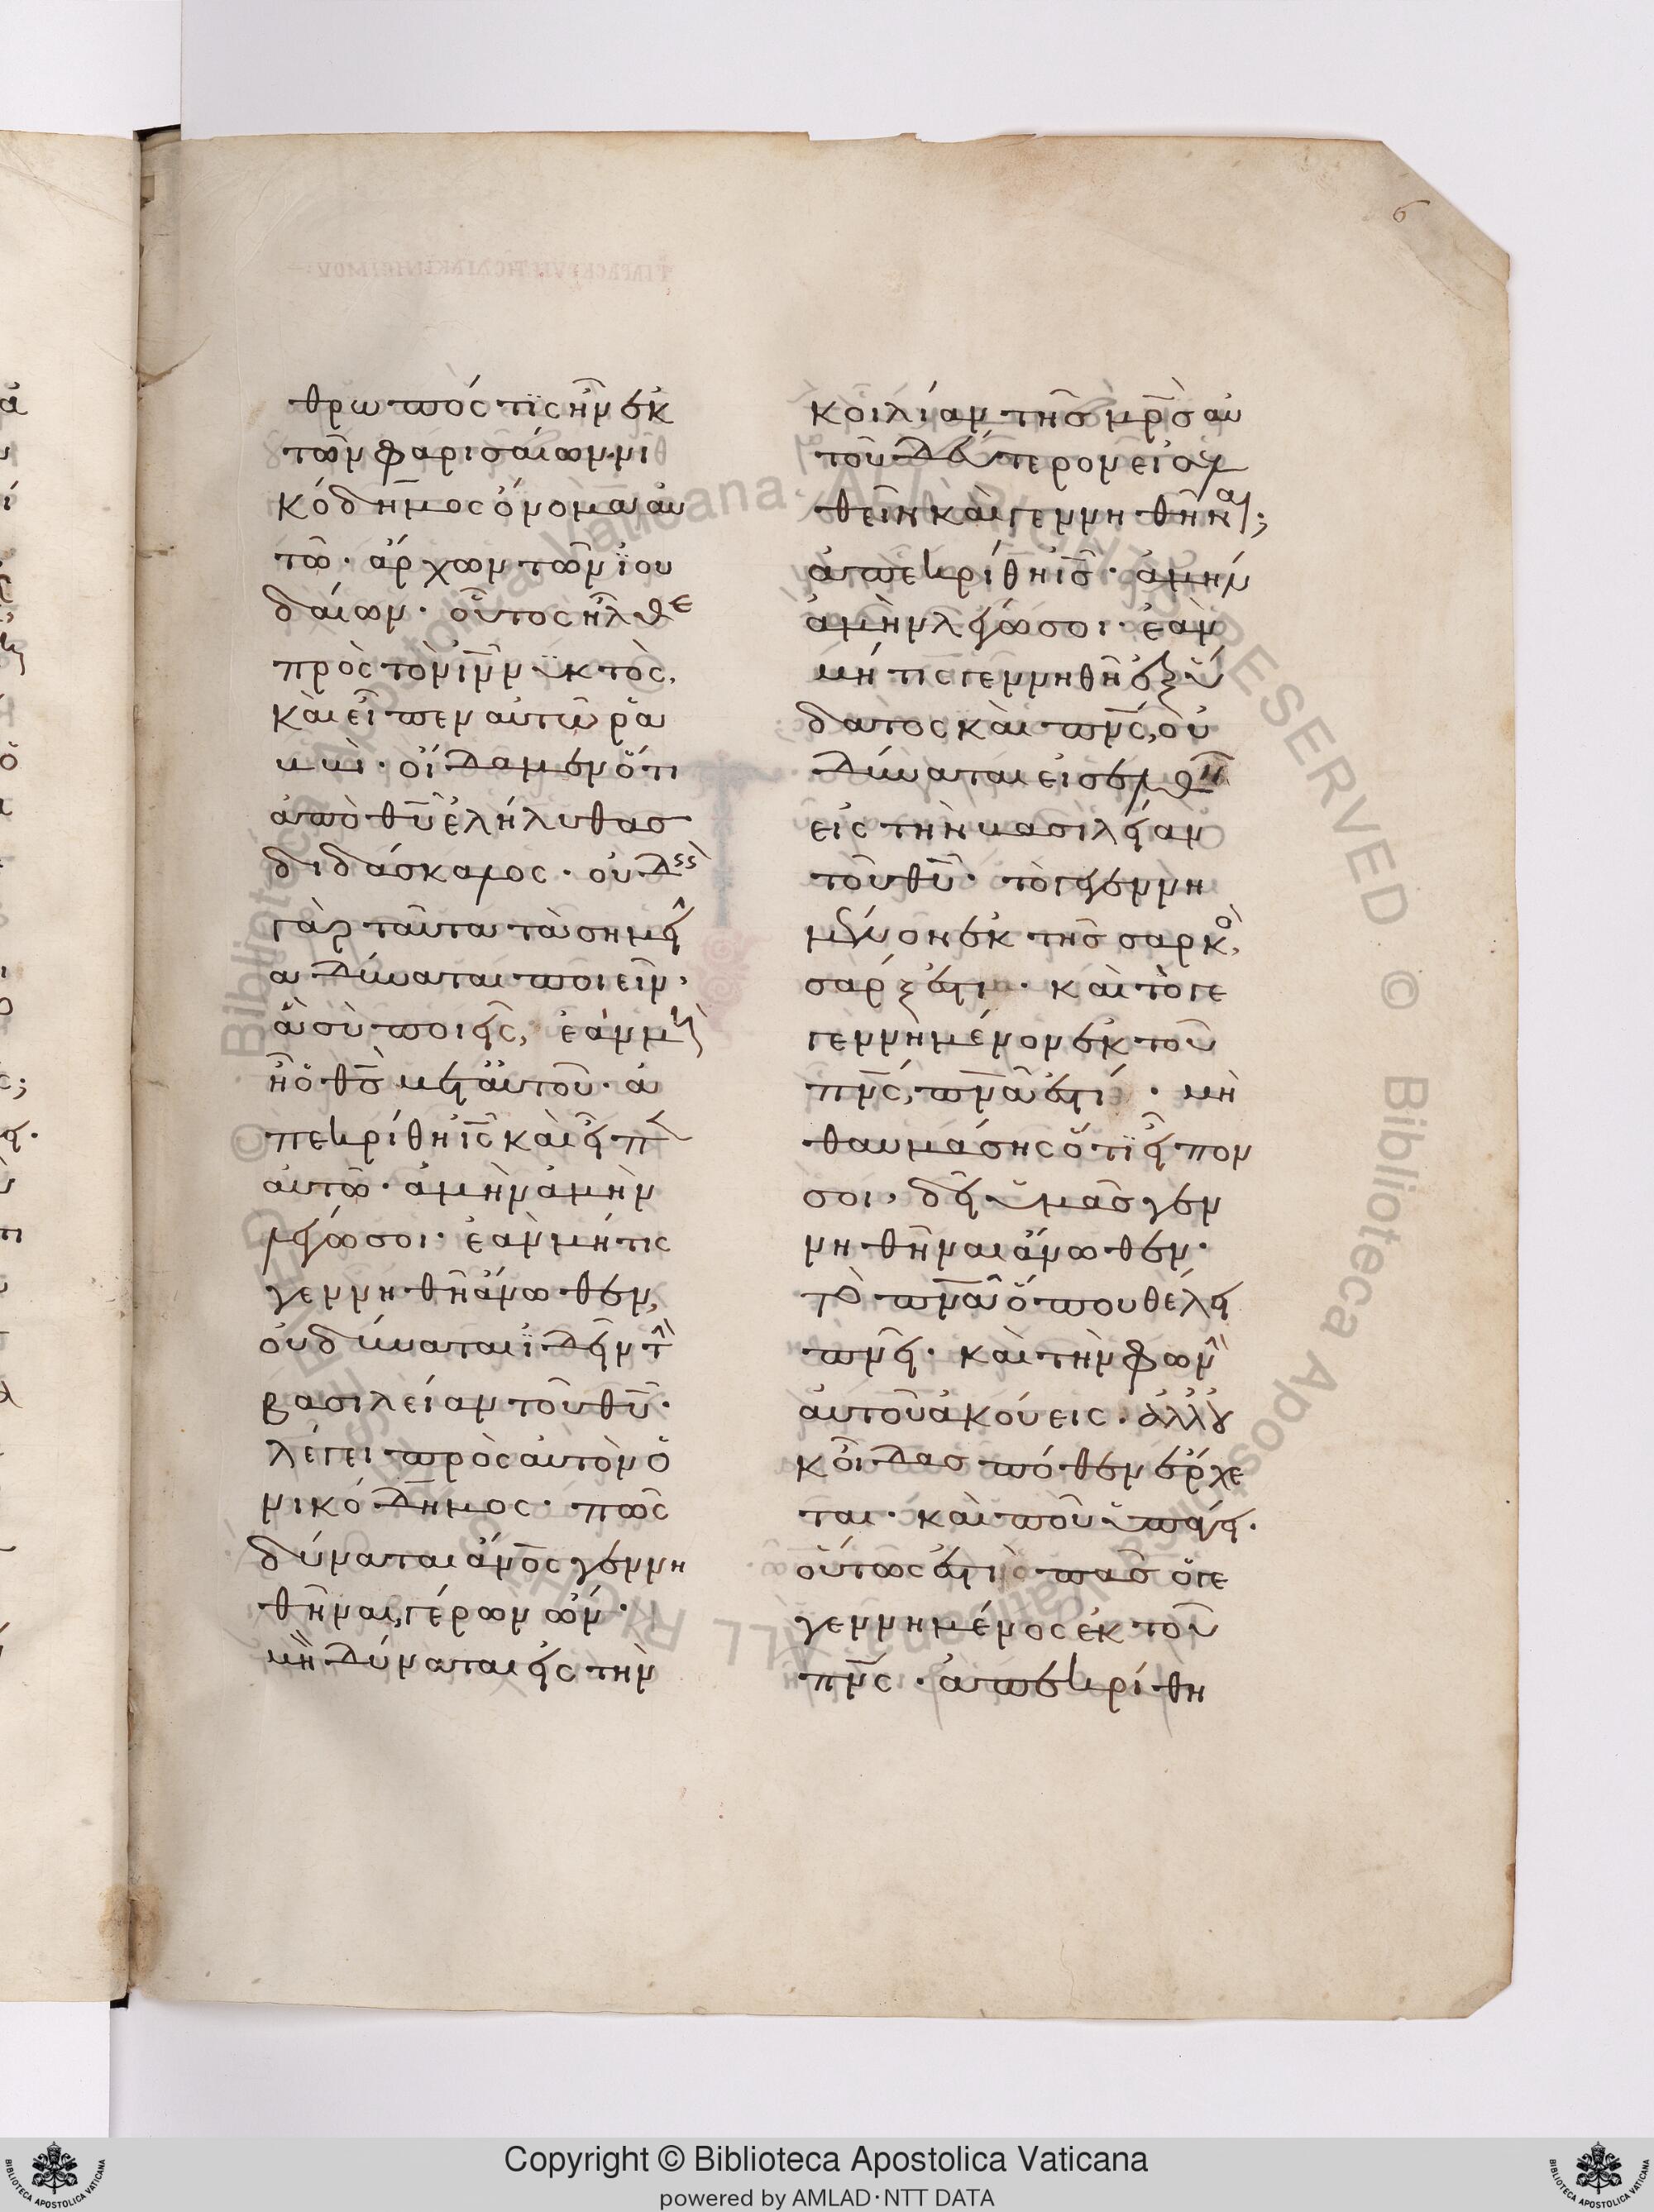 6
θρωπός τϊς ἦν ἐκ
τῶν φαρισαίων· νι
κόδημος ὄνομα αὐ
τῶ· ἄρχων τῶν ϊου
δαίων· οὗτος ἦλθε
πρὸς τὸν ιν νυκτὸς,
καὶ εἶπεν αὐτῶ ῥα
ββὶ· οἴδαμεν ὅτι
ἀπὸ θυ ἐλήλυθας
διδάσκαλος· οὐδεὶς
γὰρ ταῦτα τὰ σημεῖ
α δύναται ποιεῖν,
ἃ σὺ ποιεῖς, ἐὰν μὴ
ἦ ὁ θς μετ' αὐτοῦ· ἀ
πεκρίθη ις καὶ εἶπεν
αὐτῶ· ἀμὴν ἀμὴν
λέγω σοι· ἐὰν μή τις
γεννηθῆ ἄνωθεν,
οὐ δύναται ϊδεῖν τὴν
βασιλείαν τοῦ θυ·
λέγει πρὸς αὐτὸν ὁ
νικόδημος· πῶς
δύναται ανος γεννη
θῆναι, γέρων ὤν·
μὴ δύναται εἰς τὴν
κοιλίαν τῆς μρς αὐ
τοῦ δεύτερον εἰσελ
θεῖν καὶ γεννηθῆναι;
ἀπεκρίθη ις· ἀμήν
ἀμὴν λέγω σοι· ἐὰν
μή τις γεννηθῆ ἐξ ὕ
δατος καὶ πνς, οὐ
δύναται εἰσελθεῖν
εἰς τὴν βασιλείαν
τοῦ θυ· τὸ γεγεννη
μένον ἐκ τῆς σαρκὸς,
σάρξ ἐστι· καὶ τὸ γε
γεννημένον ἐκ τοῦ
πνς, πνα ἐστί· μὴ
θαυμάσης ὅτϊ εἶπον
σοι, δεῖ ὑμᾶς γεν
νηθῆναι ἄνωθεν·
τὸ πνα ὅπου θέλει
πνεῖ· καὶ τὴν φωνὴν
αὐτοῦ ἀκούεις· ἀλλ' οὐ
κ οἶδας πόθεν ἔρχε
ται· καὶ ποῦ ὑπάγει·
οὕτως ἐστὶ πᾶς ὁ γε
γεννημένος ἐκ τοῦ
πνς· ἀπεκρίθη
Copyright © Biblioteca Apostolica Vaticana
powered by AMLAD·NTT DATA